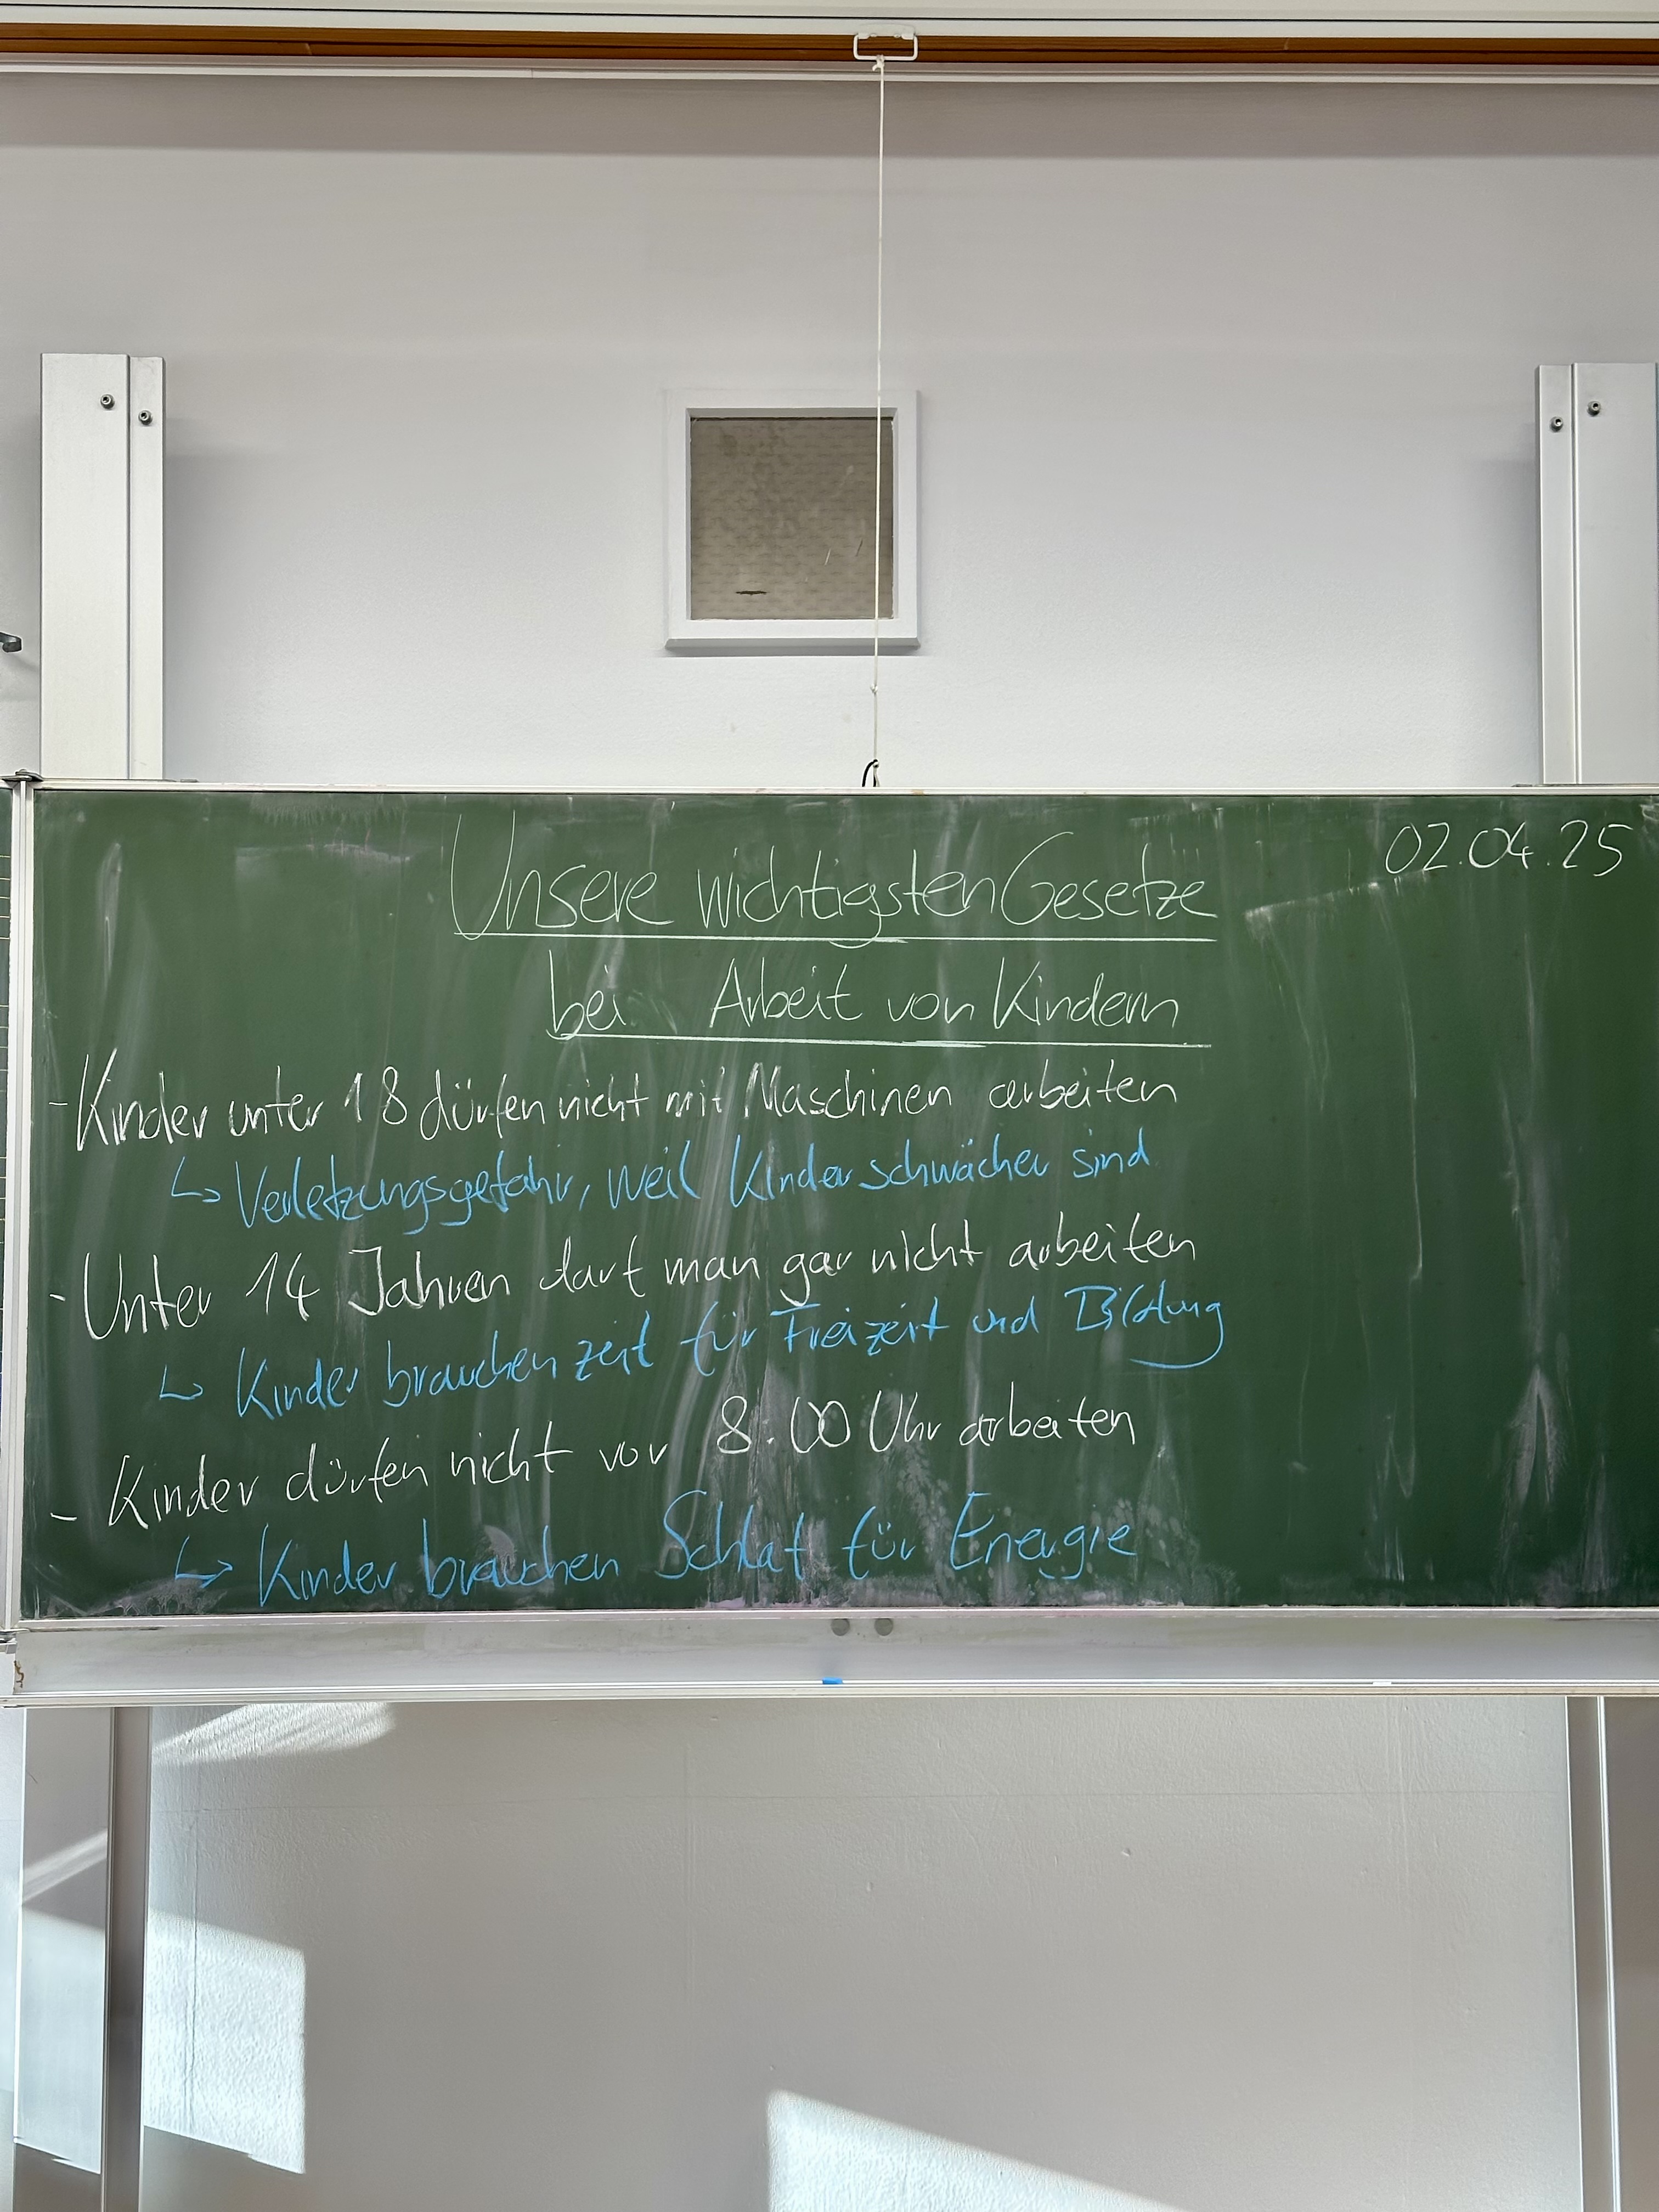 02.04.25
Unsere wichtigsten Gesetze
bei Arbeit von Kindern
- Kinder unter 18 dürfen nicht mit Maschinen arbeiten
↳ Verletzungsgefahr, weil Kinder schwächer sind
- Unter 14 Jahren darf man gar nicht arbeiten
↳ Kinder brauchen zeit für Freizeit und Bildung
- Kinder dürfen nicht vor 8.00 Uhr arbeiten
↳ Kinder brauchen Schlaf für Energie